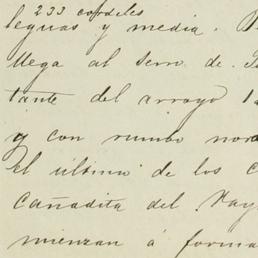 233 cordeles
leguas y media.
llega al Serro de
tante del arroyo
y con rumbo nor
el último de los
Cañadita del
mienzan á forma